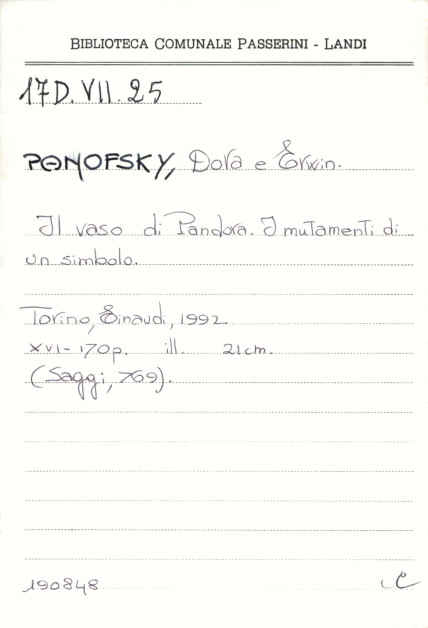 BIBLIOTECA COMUNALE PASSERINI - LANDI
17D.VII.25
PANOFSKY, Dora e Erwin.
Il vaso di Pandora. I mutamenti di
un simbolo.
Torino, Einaudi, 1992.
XVI-170p. ill. 21cm.
(Saggi, 769).
190848